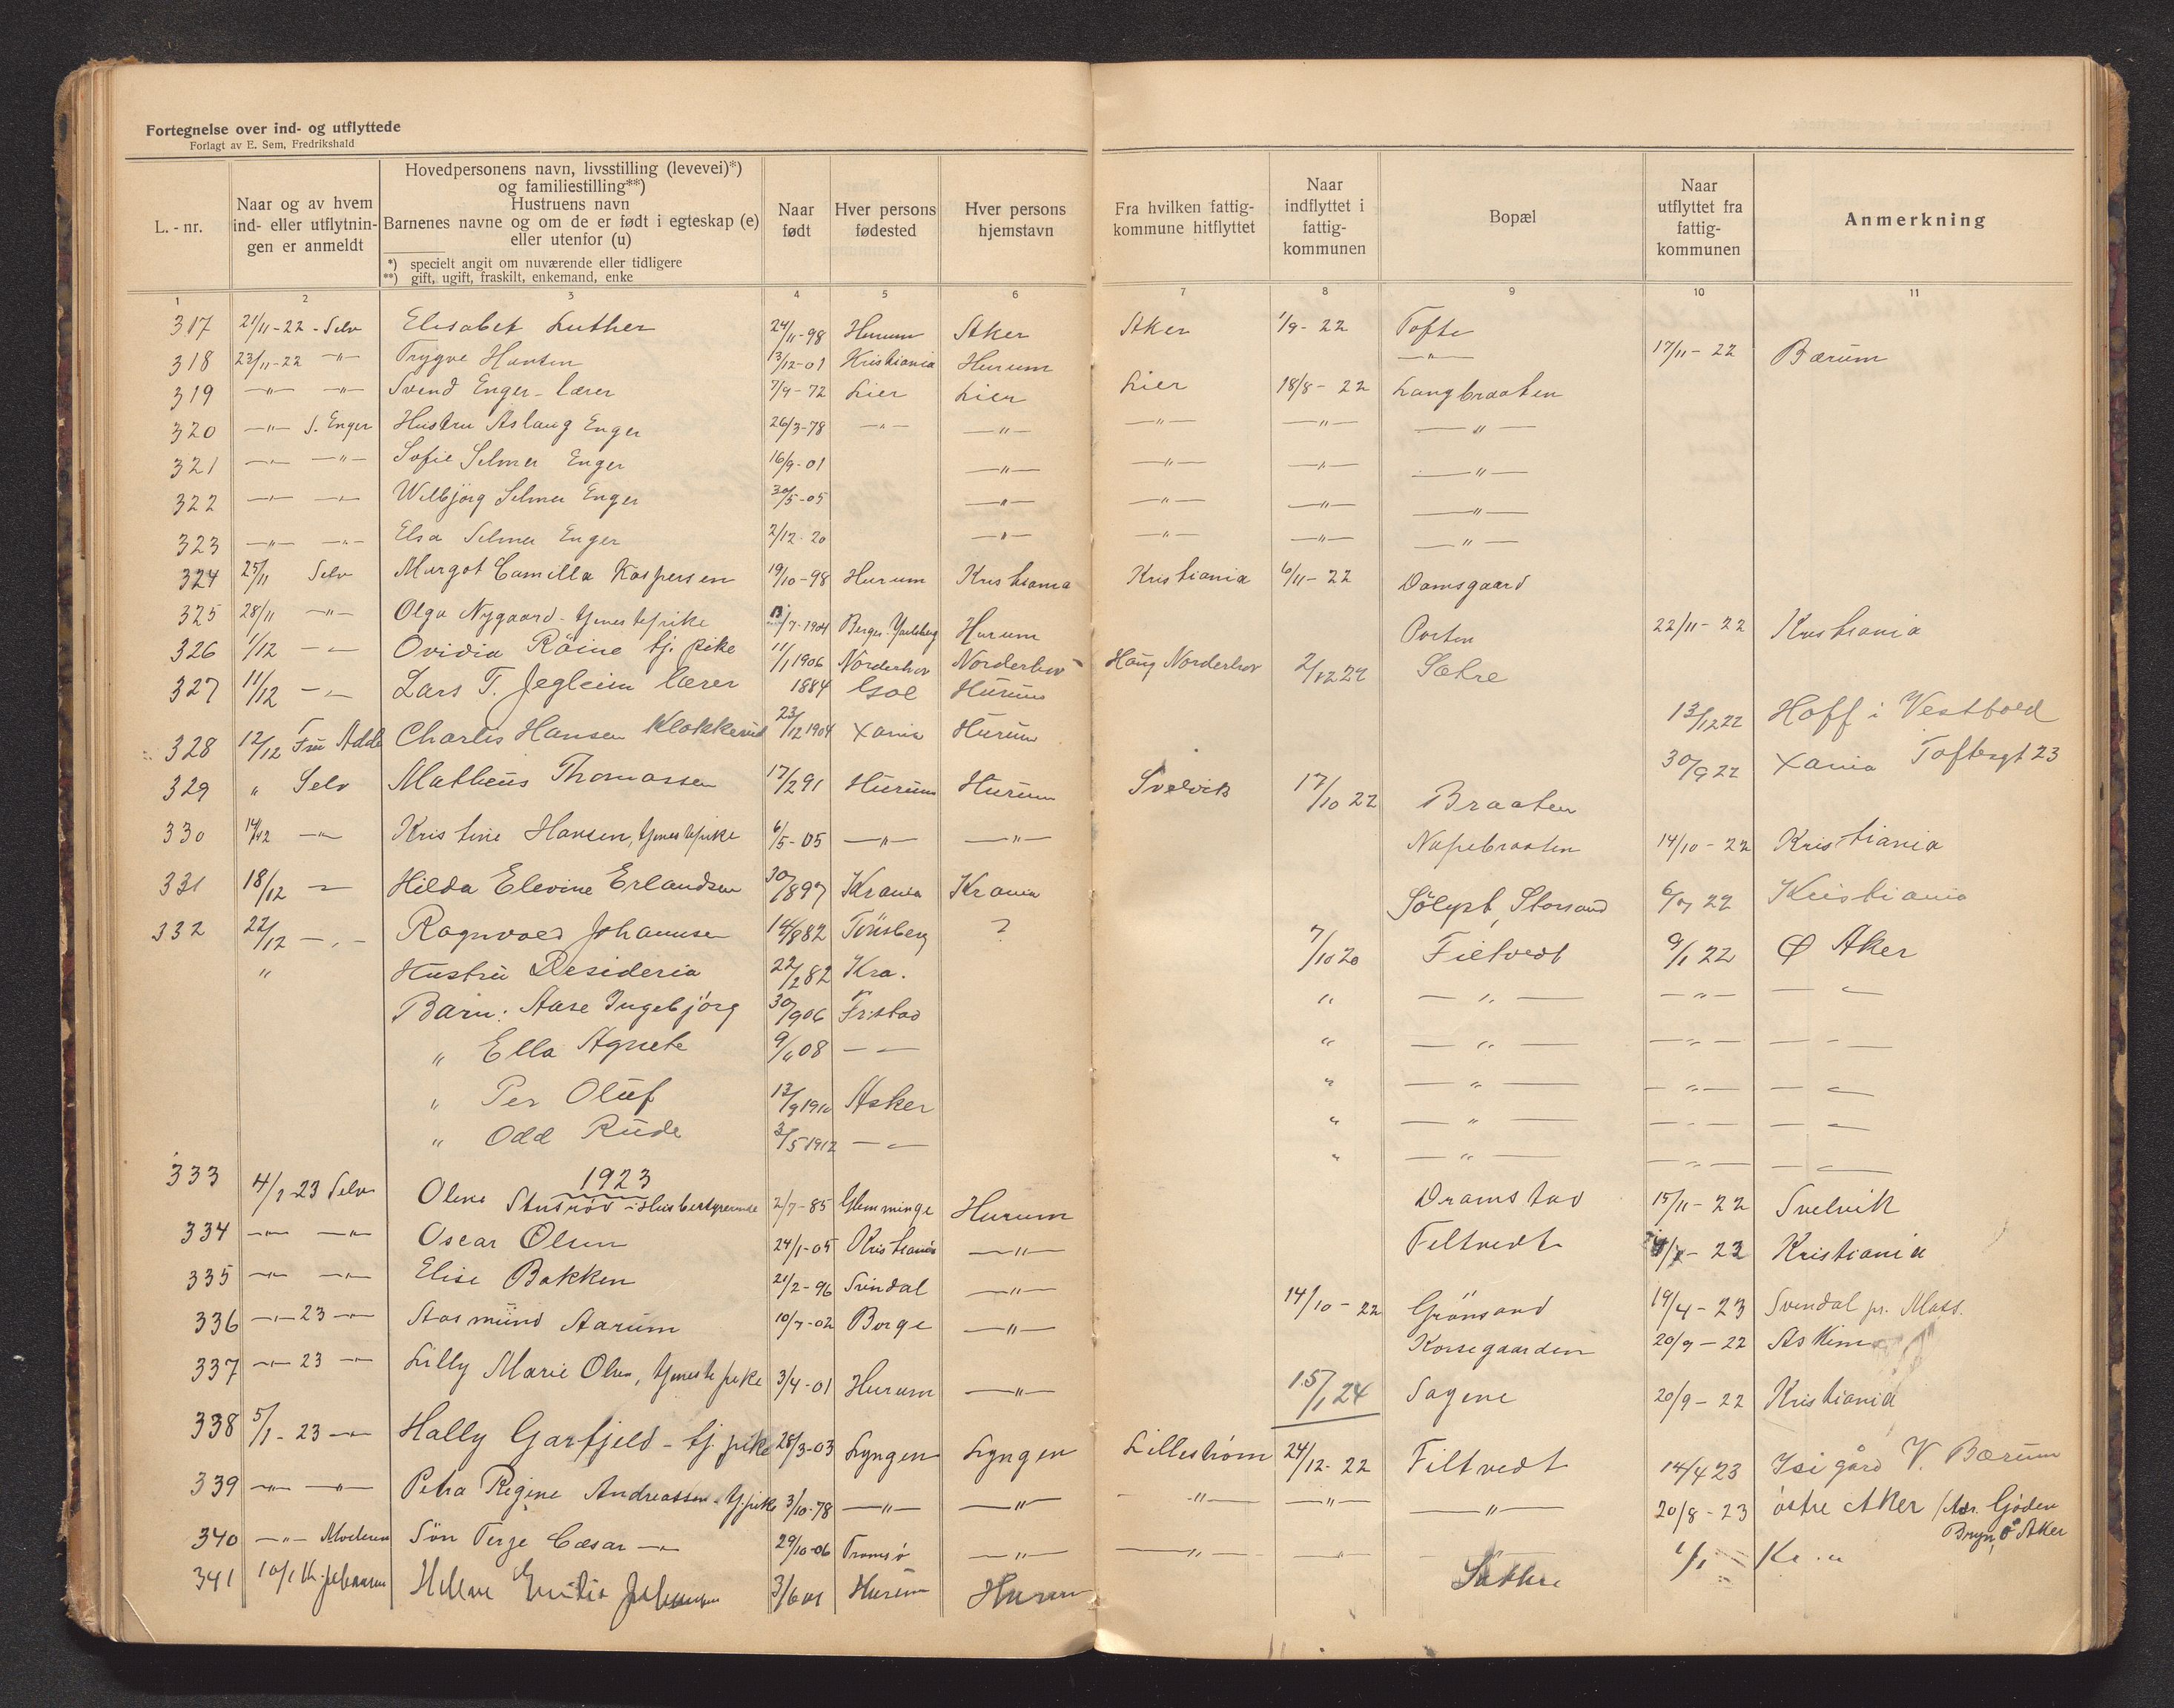 Fortegnelse over ind- og utflyttede
Forlagt av E. Sem, Fredrikshald
L.-nr.
Naar og av hvem ind- eller utflytnin-gen er anmeldt
Hovedpersonens navn, livsstilling (levevei)*)
og familiestilling**)
Hustruens navn
Barnenes navne og om de er født i egteskap (e)
eller utenfor (u)
*) specielt angit om nuværende eller tidligere
**) gift, ugift, fraskilt, enkemand, enke
Naar født
Hver persons fødested
Hver persons hjemstavn
Fra hvilken fattig-kommune hitflyttet
Naar indflyttet i fattig-kommunen
Bopæl
Naar utflyttet fra fattig-kommunen
Anmerkning
1 2 3 4 5 6 7 8 9 10 11
317 21/11-22 - Selv Elisabet Luther 24/11-98 Hurum Aker Aker 1/9-22 Tofte
318 23/11-22 -"- Trygve Hansen 13/12-01 Kristiania Hurum -"- 17/11-22 Bærum
319 -"- -"- Svend Enger - lærer 7/9-72 Lier Lier Lier 18/8-22 Langbraaten
320 -"- S. Enger Hustru Aslaug Enger 26/3-78 -"- -"- -"- -"- -"-
321 -"- -"- Sofie Selmer Enger 16/9-01 -"- -"- -"- -"-
322 -"- -"- Welbjörg Selmer Enger 30/5-05 -"- -"- -"- -"-
323 -"- -"- Elsa Selmer Enger 2/12-20 -"- -"- -"- -"-
324 25/11 Selv Margot Camilla Kaspersen 19/10-98 Hurum Kristiania Kristiania 6/11-22 Damsgaard
325 28/11 -"- Olga Nygaard - tjenestepike /7-1904 Berger Hurum Porten 22/11-22 Kristiania
326 1/12 -"- Ovidia Röine tj. pike 11/1 1906 Norderhov Norderhov Haug Norderhov 2/12 22 Sætre
327 11/12 -"- Lars T. Jegleim lærer 1884 Gol Hurum 13/12 22 Hoff i Vestfold
328 12/12 Charles Hansen Klokkerud 23/12 1904 Xania Hurum 30/9 22 Xania Toftesgt 23
329 " Selv Matheus Thomassen 17/2 91 Hurum Hurum Svelvik 17/10 22 Braaten
330 14/12 -"- Kristine Hansen, tjenestepike 6/5-05 -"- -"- Napebraaten 14/10-22 Kristiania
331 18/12 -"- Hilda Elevine Erlandsen 30/ 897 Krania Krania Storsand 22 Kristiania
332 22/12 -"- Ragnvald Johannsen 14/8 82 Tönsberg ? 7/10 20 Filtvedt 9/1 22 Ø Aker
" Hustru Desideria 22/2 82 Kra. " -"- -"- -"-
Barn: Aase Ingebjörg 30/9 06 Fr.stad " -"- -"- -"-
" Ella Agnete 9/ 08 -"- " -"- -"- -"-
" Per Oluf 13/9 1910 Asker " -"- -"- -"-
" Odd Rude 3/5 1912 -"- " -"- -"- -"-
1923
333 4/1 23 Selv Olene - Husbestyrerinde 2/7-85 Glemminge Hurum Dramstad 15/11-22 Svelvik
334 -"- -"- Oscar Olsen 24/1-05 Kristiania -"- Filtvedt - 23 Kristiania
335 -"- -"- Elise Bakken 21/2-96 Svindal -"- 14/10-22 Grönsand 19/4-23 Svendal pr. Moss.
336 -"- 23 -"- Aasmund Aarum 10/7-02 Borge -"- Korsegaarden 20/9-22 Askim
337 -"- 23 -"- Lilly Marie Olsen, tjenestepike 3/4-01 Hurum -"- 15/1 24 Sagene 20/9-22 Kristiania
338 5/1-23 -"- Hally Garfjeld - tj. pike 28/3-03 Lyngen Lyngen Lillestrøm 24/12-22 Filtvedt 14/4 23 Isi gård V. Bærum
339 -"- -"- Petra Regine Andreassen - tj.pike 3/10-78 -"- -"- -"- -"- -"- 20/8-23 østre Aker / Adr. Gjöden
Bryn, Ø Aker
340 -"- Moderen Sön Terje Cæsar -"- 29/10-06 Tromsö -"- -"- -"- -"-
341 10/1 Johansen Helene Emilie Johansen 3/6 01 Hurum Hurum Sætre